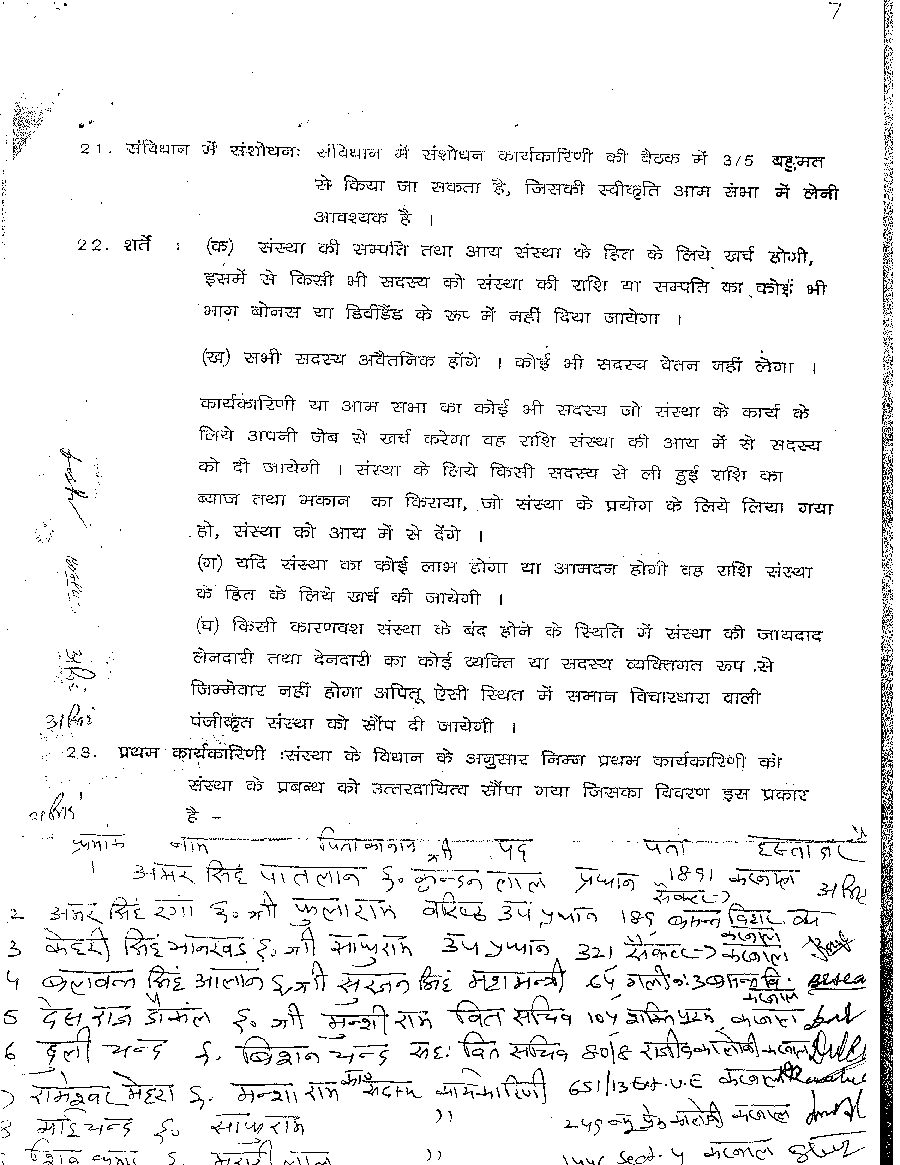 7
21. संविधान में संशोधनः संविधान में संशोधन कार्यकारिणी की बैठक में 3/5 बहुमत
से किया जा सकता है, जिसकी स्वीकृति आम संभा में लेनी
आवश्यक है ।
22. शर्ते : (क) संस्था की सम्पति तथा आय संस्था के हित के लिये खर्च होगी,
इसमें से किसी भी सदस्य को संस्था की राशि या सम्पति का कोई भी
भाग बोनस या डिवीडैंड के रूप में नहीं दिया जायेगा ।
(ख) सभी सदस्य अवैतनिक होंगे । कोई भी सदस्य वेतन नहीं लेगा ।
कार्यकारिणी या आम सभा का कोई भी सदस्य जो संस्था के कार्य के
लिये अपनी जेब से खर्च करेगा वह राशि संस्था की आय में से सदस्य
को दी जायेगी । संस्था के लिये किसी सदस्य से ली हुई राशि का
ब्याज तथा मकान का किराया, जो संस्था के प्रयोग के लिये लिया गया
हो, संस्था को आय में से देंगे ।
(ग) यदि संस्था का कोई लाभ होगा या आमदन होगी वह राशि संस्था
के हित के लिये खर्च की जायेगी ।
(घ) किसी कारणवश संस्था के बंद होने के स्थिति में संस्था की जायदाद
लेनदारी तथा देनदारी का कोई व्यक्ति या सदस्य व्यक्तिगत रूप से
जिम्मेवार नहीं होगा अपितू ऐसी स्थित में समान विचारधारा वाली
पंजीकृत संस्था को सौंप दी जायेगी ।
23. प्रथम कार्यकारिणी :संस्था के विधान के अनुसार निम्न प्रथम कार्यकारिणी को
संस्था के प्रबन्ध को उत्तरदायित्व सौंपा गया जिसका विवरण इस प्रकार
है -
क्रमांक नाम पिता का नाम श्री पद पता हस्ताक्षर
1 अमर सिंह पातलान s. कुन्दन लाल प्रधान 1891 सैक्टर-7 करनाल
2 अमर सिंह रंगा s. श्री फुलाराम वरिष्ठ उप प्रधान 189 बसन्त विहार
3 केहरी सिंह मानखड s. श्री साधुराम उप प्रधान 321 सैक्टर-7 करनाल
4 बलवन्त सिंह आलान s. श्री सुरजन सिंह महामन्त्री 64 गली नं. 3 करनाल
5 देस राज s. श्री मुन्शी राम वित सचिव 104 शक्तिपुरम करनाल
6 दुली चन्द s. बिशन चन्द सह: वित सचिव 80/8 राजीव कालोनी करनाल
7 रामेश्वर मेहरा s. मन्शा राम सदस्य कार्यकारिणी 651/13 करनाल
8 माई चन्द s. साधुराम " 245 न्यू प्रेम कालोनी करनाल
s. मुरारी लाल " Sect. 4 करनाल